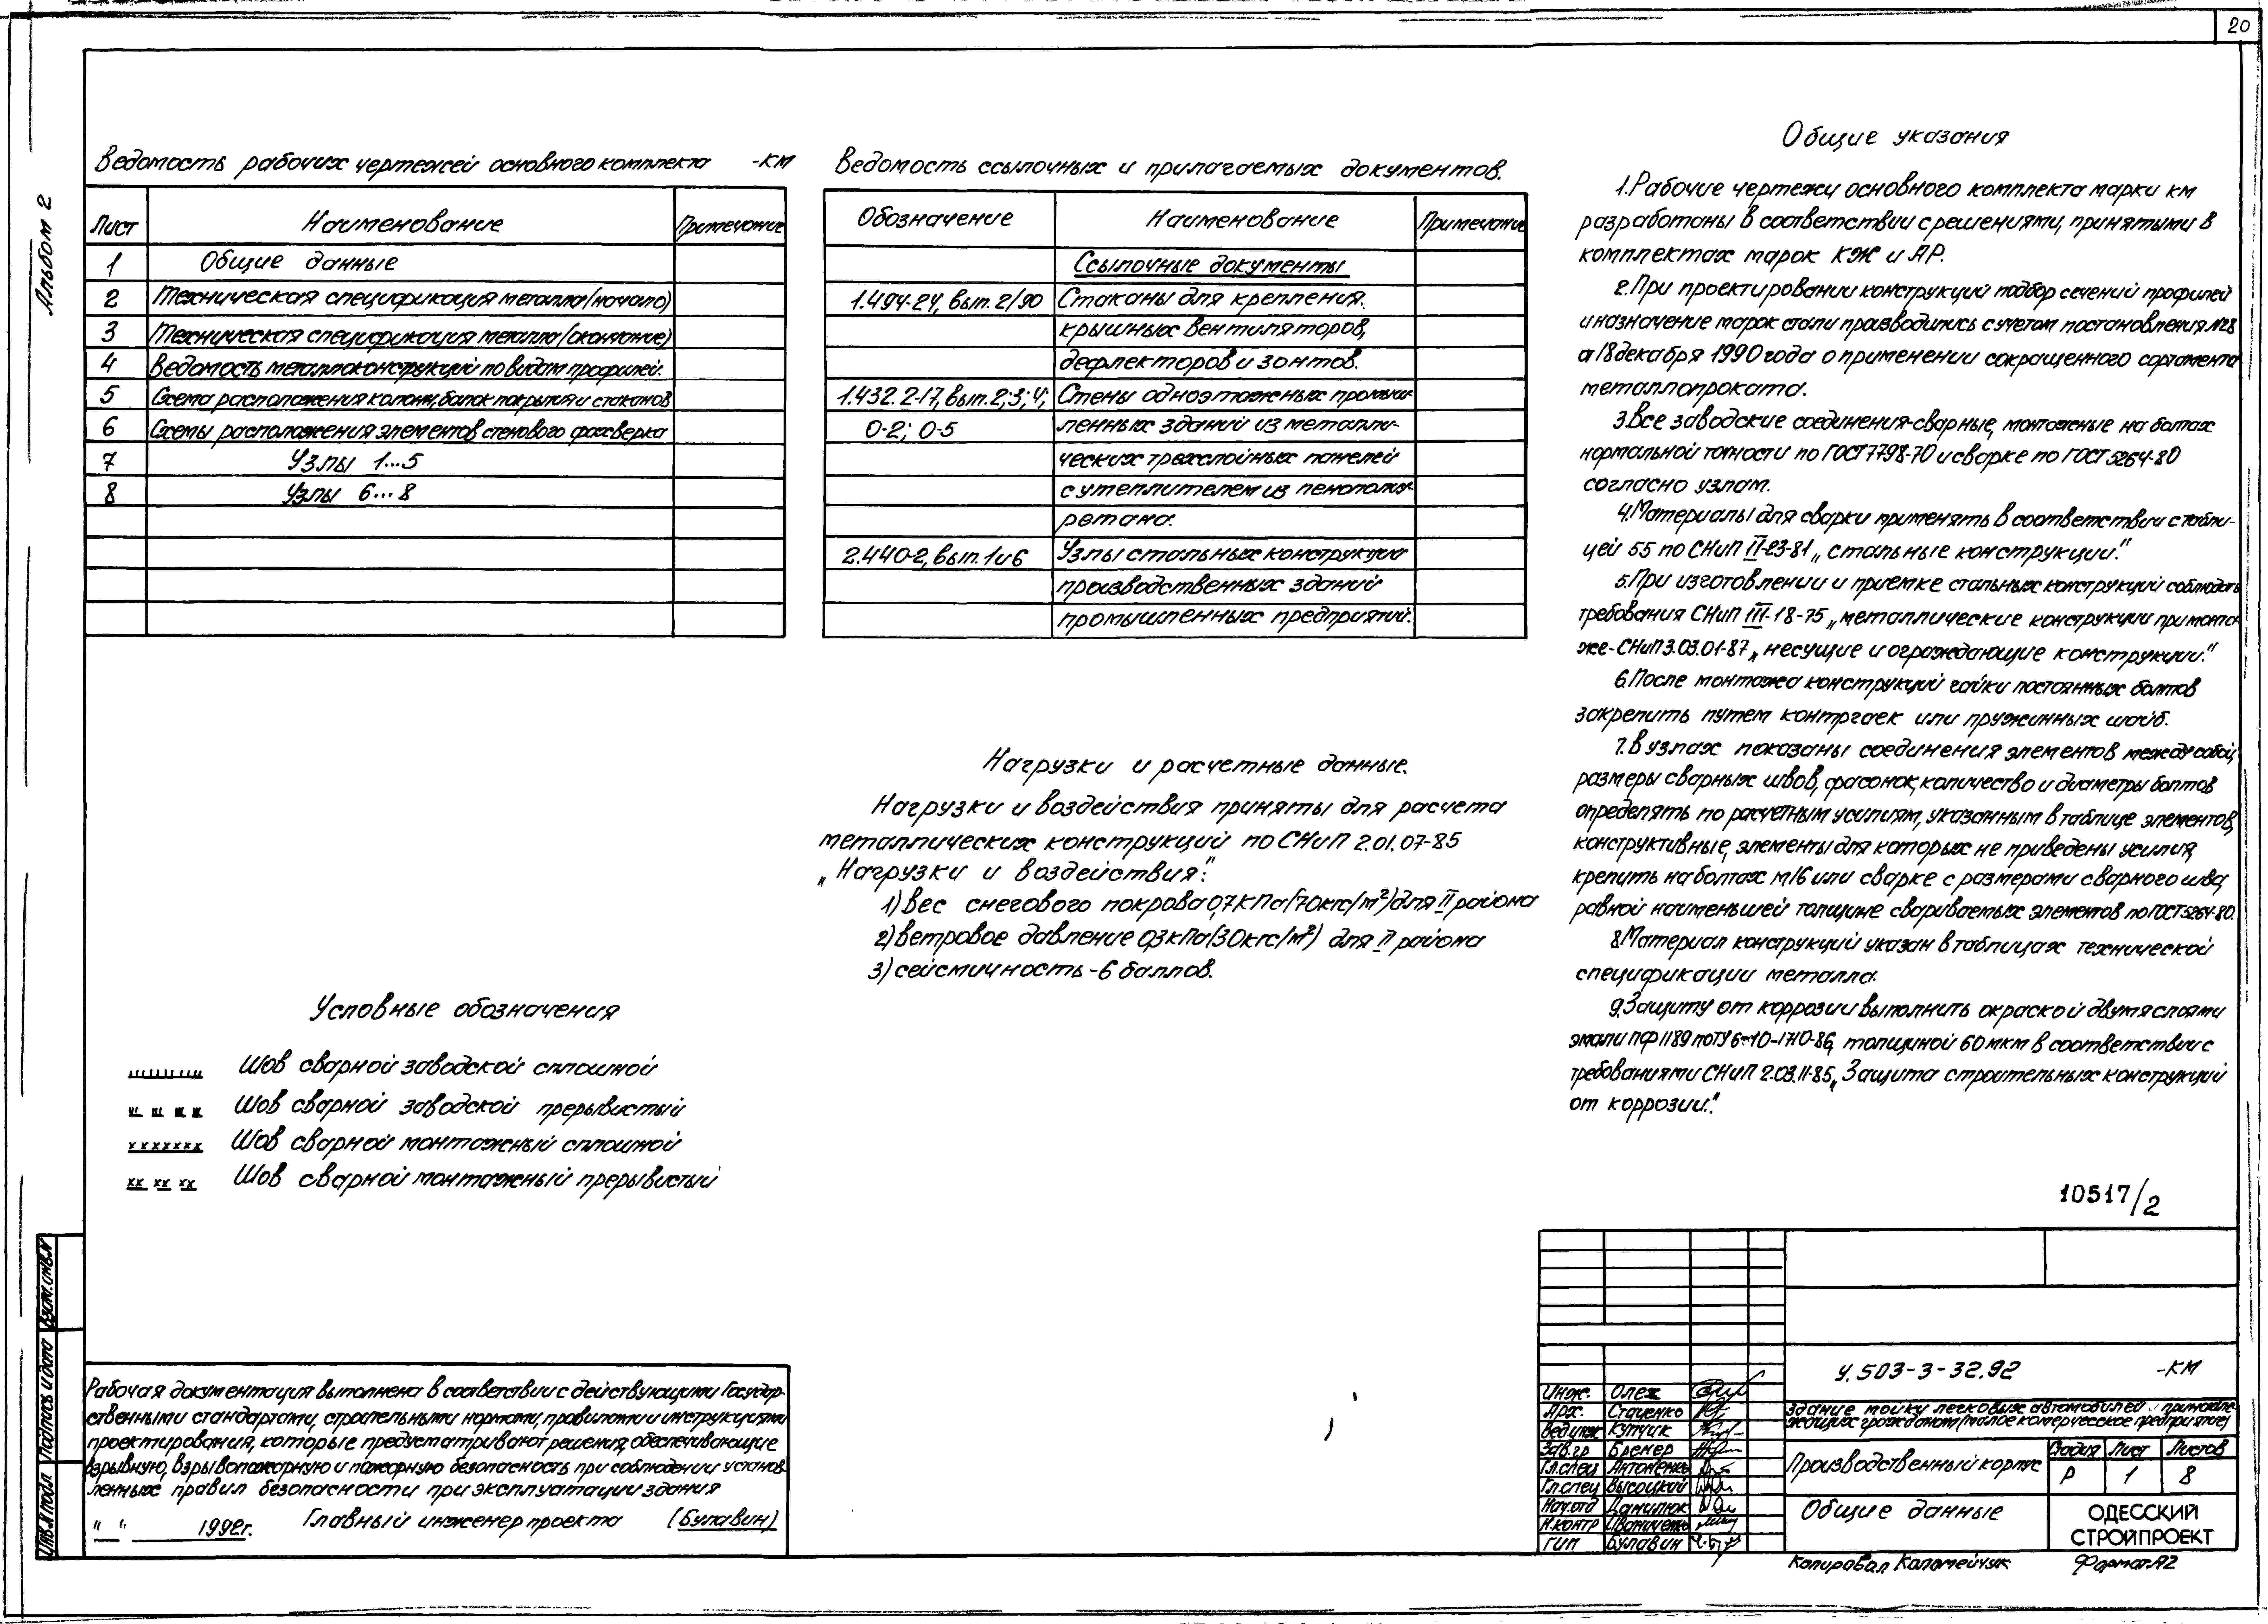 20
Альбом 2
Ведомость рабочих чертежей основного комплекта -КМ
Лист Наименование Примечание
1 Общие данные
2 Техническая спецификация металла (начало)
3 Техническая спецификация металла (окончание)
4 Ведомость металлоконструкций по видам профилей.
5 Схема расположения колонн, балок покрытия и стаканов
6 Схемы расположения элементов стенового фахверка
7 Узлы 1...5
8 Узлы 6...8
Ведомость ссылочных и прилагаемых документов.
Обозначение Наименование Примечание
Ссылочные документы
1.494-24, вып. 2/90 Стаканы для крепления.
крышных вентиляторов,
дефлекторов и зонтов.
1.432.2-17, вып. 2;3;4; Стены одноэтажных промыш-
0-2; 0-5 ленных зданий из металли-
ческих трехслойных панелей
с утеплителем из пенополиу-
ретана.
2.440-2, вып. 1 и 6 Узлы стальных конструкций
производственных зданий
промышленных предприятий.
Нагрузки и расчетные данные.
Нагрузки и воздействия приняты для расчета
металлических конструкций по СНиП 2.01.07-85
„Нагрузки и воздействия":
1) Вес снегового покрова 0,7 кПа (70кгс/м²) для II района
2) ветровое давление 0,3 кПа (30кгс/м²) для II района
3) сейсмичность - 6 баллов.
Условные обозначения
Шов сварной заводской сплошной
Шов сварной заводской прерывистый
Шов сварной монтажный сплошной
Шов сварной монтажный прерывистый
Общие указания
1. Рабочие чертежи основного комплекта марки КМ
разработаны в соответствии с решениями, принятыми в
комплектах марок КЖ и АР.
2. При проектировании конструкций подбор сечений профилей
и назначение марок стали производились с учетом постановления №28
от 18 декабря 1990 года о применении сокращенного сортамента
металлопроката.
3. Все заводские соединения-сварные, монтажные на болтах
нормальной точности по ГОСТ 7798-70 и сварке по ГОСТ 5264-80
согласно узлам.
4. Материалы для сварки применять в соответствии с табли-
цей 55 по СНиП II-23-81 „стальные конструкции."
5. При изготовлении и приемке стальных конструкций соблюдать
требования СНиП III-18-75 „металлические конструкции при монта-
же-СНиП 3.03.01-87 „несущие и ограждающие конструкции."
6. После монтажа конструкций гайки постоянных болтов
закрепить путем контргаек или пружинных шайб.
7. В узлах показаны соединения элементов между собой,
размеры сварных швов, фасонок, количество и диаметры болтов
определять по расчетным усилиям, указанным в таблице элементов,
конструктивные, элементы для которых не приведены усилия,
крепить на болтах М16 или сварке с размерами сварного шва,
равной наименьшей толщине свариваемых элементов по ГОСТ 5264-80.
8. Материал конструкций указан в таблицах технической
спецификации металла.
9. Защиту от коррозии выполнить окраской двумя слоями
эмали ПФ 1189 по ТУ 6-10-1710-86, толщиной 60 мкм в соответствии с
требованиями СНиП 2.03.11-85 „Защита строительных конструкций
от коррозии."
10517/2
Рабочая документация выполнена в соответствии с действующими Государ-
ственными стандартами, строительными нормами, правилами и инструкциями
проектирования, которые предусматривают решения, обеспечивающие
взрывную, взрывопожарную и пожарную безопасность при соблюдении установ-
ленных правил безопасности при эксплуатации здания
" " 1992г. Главный инженер проекта (Булавин)
Инв. № подл. Подпись и дата Взам. инв. №
У.503-3-32.92 -КМ
Здание мойки легковых автомобилей, принадле-
жащих гражданам (малое комерческое предприятие)
Инж. Олех
Арх. Стаценко
Вед.инж Купчик
Зав.гр Бремер
Гл.спец Антоненко
Гл.спец Высоцкий
Нач.отд Данилюк
Н.контр Иваниченко
ГИП Булавин
Производственный корпус
Стадия Лист Листов
Р 1 8
Общие данные
ОДЕССКИЙ
СТРОЙПРОЕКТ
Копировал Коломейчук Формат А2